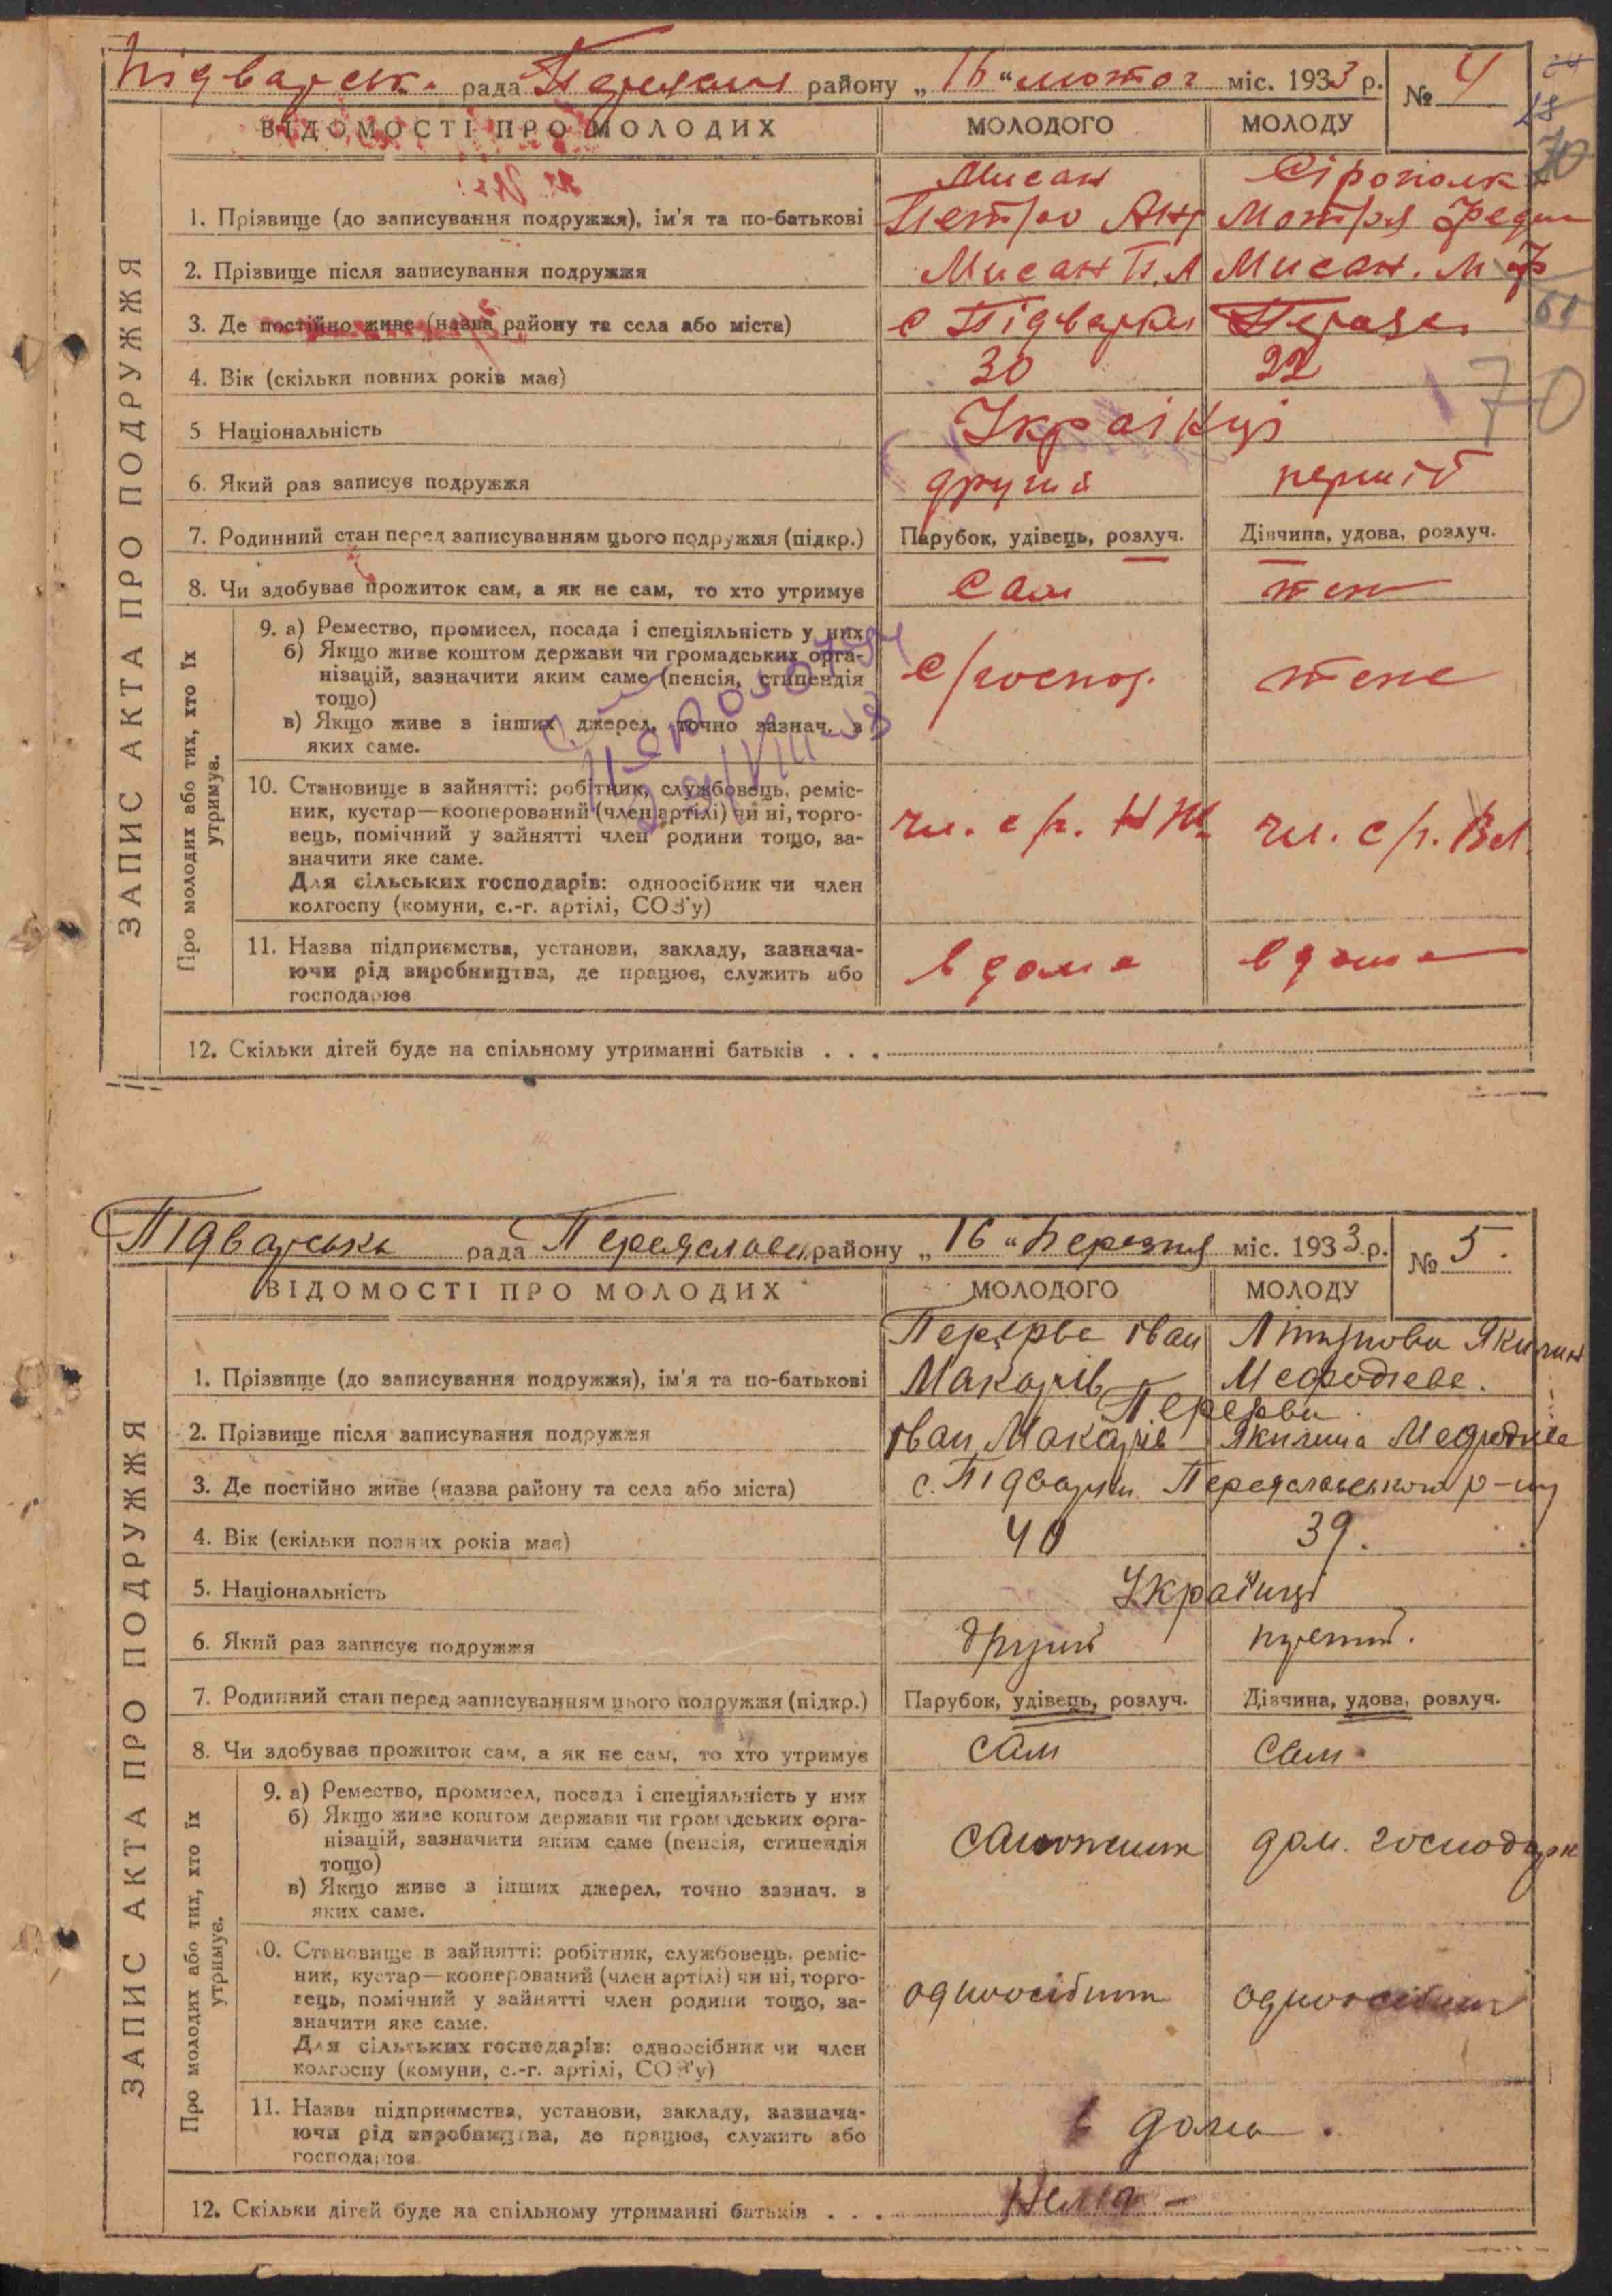 Підварськ. рада Переяслав району „ 16 " лютог міс. 1933 р. № 4
ВІДОМОСТІ ПРО МОЛОДИХ МОЛОДОГО МОЛОДУ
70
Мисан Сірополк
1. Прізвище (до записування подружжя), ім'я та по-батькові Петро Анд Мотря Федір
2. Прізвище після записування подружжя Мисан П. А Мисан. М Ф
3. Де постійно живе (назва району та села або міста) с Підварки
4. Вік (скільки повних років має) 30 22
70
5 Національність Українці
6. Який раз записує подружжя другий перший
7. Родинний стан перед записуванням цього подружжя (підкр.) Парубок, удівець, розлуч. Дівчина, удова, розлуч.
8. Чи здобуває прожиток сам, а як не сам, то хто утримує Сам
9. а) Ремество, промисел, посада і спеціяльність у них
б) Якщо живе коштом держави чи громадських орга-
нізацій, зазначити яким саме (пенсія, стипендія
тощо)
с/господ. теж
в) Якщо живе з інших джерел, точно зазнач. з
яких саме.
10. Становище в зайнятті: робітник, службовець, реміс-
ник, кустар—кооперований (член артілі) чи ні, торго-
вець, помічний у зайнятті член родини тощо, за-
значити яке саме.
чл. с/г. чл. с/г.
Для сільських господарів: одноосібник чи член
колгоспу (комуни, с.-г. артілі, СОЗ'у)
11. Назва підприємства, установи, закладу, зазнача-
ючи рід виробництва, де працює, служить або
господарює
вдома вдома
12. Скільки дітей буде на спільному утриманні батьків . . .
ЗАПИС АКТА ПРО ПОДРУЖЖЯ
Про молодих або тих, хто їх
утримує.
Підварська рада Переяславл. району „ 16 " Березня міс. 1933 р. № 5.
ВІДОМОСТІ ПРО МОЛОДИХ МОЛОДОГО МОЛОДУ
Перерва Іван Якилин
1. Прізвище (до записування подружжя), ім'я та по-батькові Макарів Мефодієва.
Перерви
2. Прізвище після записування подружжя Іван Макарів Якилина Мефодієва
3. Де постійно живе (назва району та села або міста) с. Підварки Переяславського р-ну
4. Вік (скільки повних років має) 40 39.
5. Національність Українці
6. Який раз записує подружжя другий третий.
7. Родинний стан перед записуванням цього подружжя (підкр.) Парубок, удівець, розлуч. Дівчина, удова, розлуч.
8. Чи здобуває прожиток сам, а як не сам, то хто утримує сам сам
9. а) Ремество, промисел, посада і спеціяльність у них
б) Якщо живе коштом держави чи громадських орга-
нізацій, зазначити яким саме (пенсія, стипендія
тощо)
дом. господарк
в) Якщо живе з інших джерел, точно зазнач. з
яких саме.
10. Становище в зайнятті: робітник, службовець, реміс-
ник, кустар—кооперований (член артілі) чи ні, торго-
вець, помічний у зайнятті член родини тощо, за-
значити яке саме.
одноосібник одноосібник
Для сільських господарів: одноосібник чи член
колгоспу (комуни, с.-г. артілі, СОЗ'у)
11. Назва підприємства, установи, закладу, зазнача-
ючи рід виробництва, де працює, служить або
господарює
в дома.
12. Скільки дітей буде на спільному утриманні батьків . . . Нема -
ЗАПИС АКТА ПРО ПОДРУЖЖЯ
Про молодих або тих, хто їх
утримує.